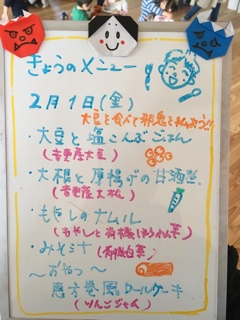 きょうのメニュー
2月1日(金)
大豆を食べて邪気を払おう!!
・大豆と塩こんぶごはん
(音更産大豆)
・大根と厚揚げの甘酒煮
(音更産大根)
・もやしのナムル
(もやしと有機ほうれん草)
・みそ汁
(有機白菜)
〜おやつ〜
恵方巻風ロールケーキ
(りんごジャム)